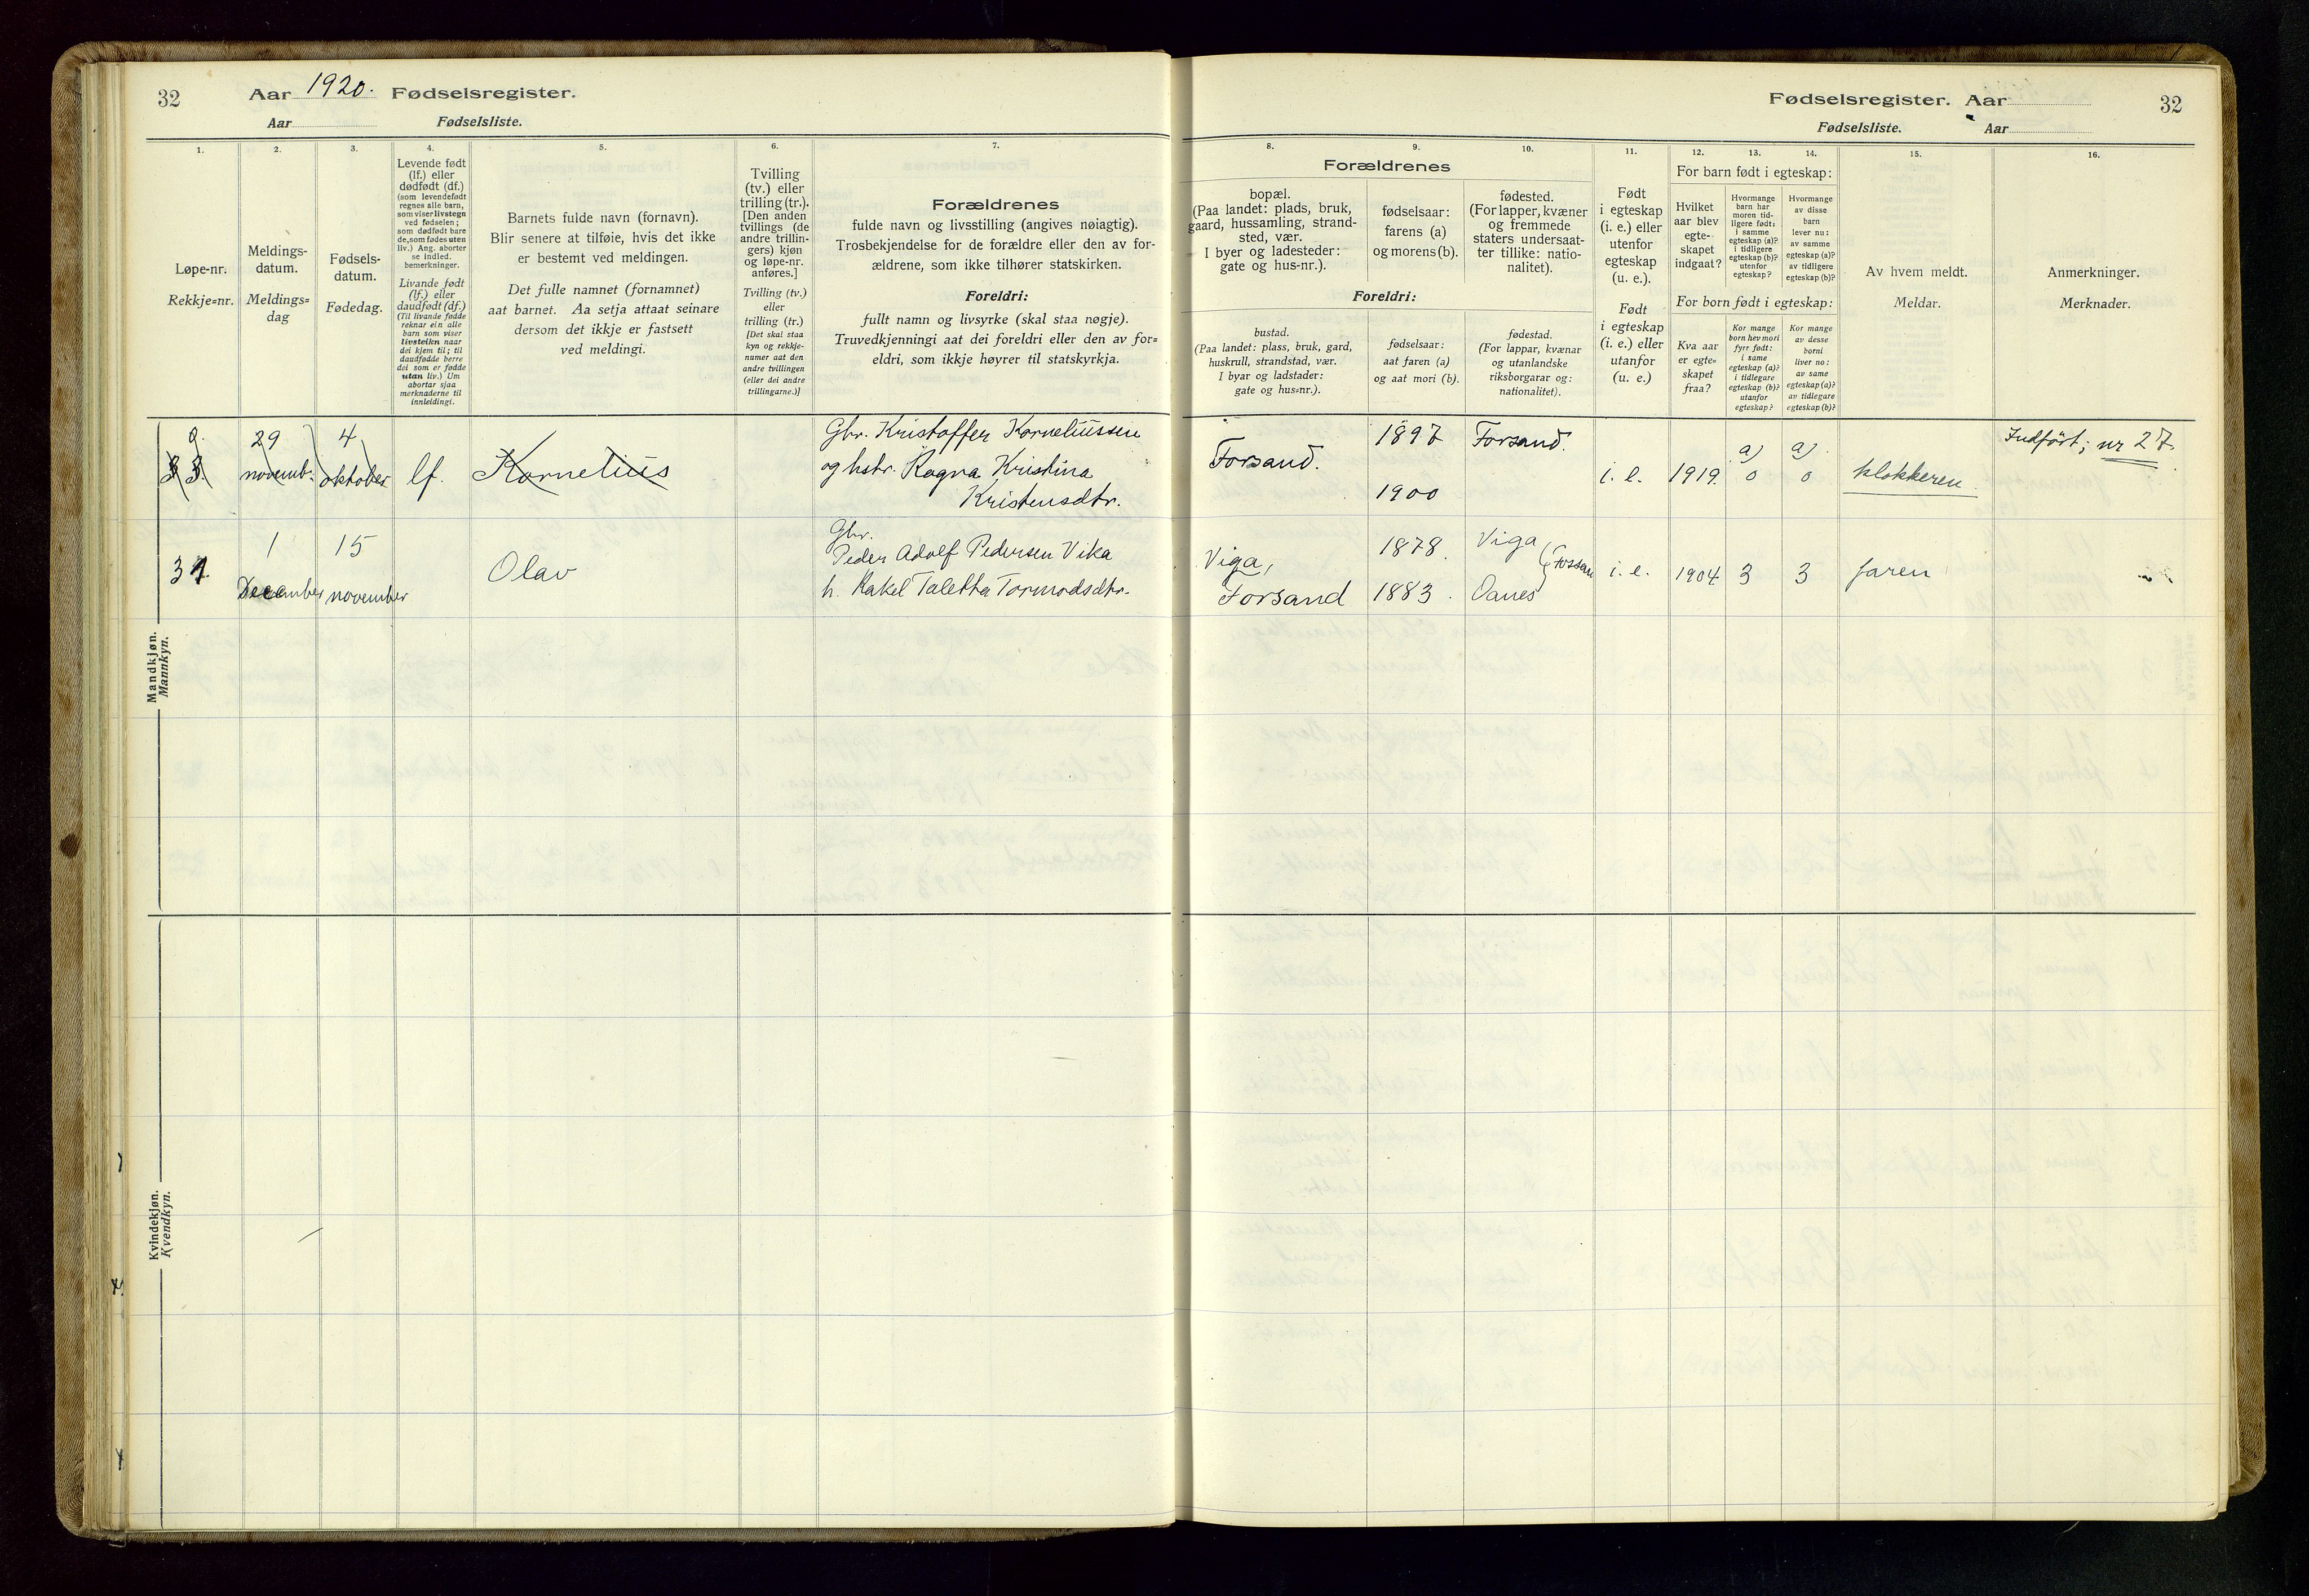 32
Aar 1920. Fødselsregister.
Aar Fødselsliste.
1.
Løpe-nr.
Rekkje=nr.
2.
Meldings-
datum.
Meldings=
dag
3.
Fødsels-
datum.
Fødedag.
4.
Levende født
(lf.) eller
dødfødt (df.)
(som levendefødt
regnes alle barn,
som viser livstegn
ved fødselen;
som dødfødt bare
de, som fødes uten
liv.) Ang. aborter
se indled.
bemerkninger.
Livande født
(lf.) eller
daudfødt (df.)
(Til livande fødde
reknar ein alle
barn som viser
livsteikn naar
dei kjem til; til
daudfødde berre
dei som er fødde
utan liv.) Um
abortar sjaa
merknaderne til
innleidingi.
5.
Barnets fulde navn (fornavn).
Blir senere at tilføie, hvis det ikke
er bestemt ved meldingen.
Det fulle namnet (fornamnet)
aat barnet. Aa setja attaat seinare
dersom det ikkje er fastsett
ved meldingi.
6.
Tvilling
(tv.) eller
trilling (tr.).
[Den anden
tvillings (de
andre trillin-
gers) kjøn
og løpe-nr.
anføres.]
Tvilling (tv.)
eller
trilling (tr.)
[Det skal staa
kyn og rekkje-
numer aat den
andre tvillingen
(eller dei andre
trillingarne.)]
7.
Forældrenes
fulde navn og livsstilling (angives nøiagtig).
Trosbekjendelse for de forældre eller den av for-
ældrene, som ikke tilhører statskirken.
Foreldri:
fullt namn og livsyrke (skal staa nøgje).
Truvedkjenningi aat dei foreldri eller den av for=
eldri, som ikkje høyrer til statskyrkja.
29
novemb.
4
oktober
lf.
Kornelius
Gbr. Kristoffer Korneliussen
og hstr. Ragna Kristina
Kristensdtr.
31
1
December
15
november
Olav
Gbr.
Peder Adolf Pedersen Vika
h. Rakel Taletta Tormodsdtr.
Mandkjøn.
Mannkyn.
Kvindekjøn.
Kvendkyn.
Fødselsregister. Aar
32
Fødselsliste. Aar
8.
Forældrenes
bopæl.
(Paa landet: plads, bruk,
gaard, hussamling, strand-
sted, vær.
I byer og ladesteder:
gate og hus-nr.).
Foreldri:
bustad.
(Paa landet: plass, bruk, gard,
huskrull, strandstad, vær.
I byar og ladstader:
gate og hus=nr.).
9.
fødselsaar:
farens (a)
og morens (b).
fødselsaar:
aat faren (a)
og aat mori (b).
10.
fødested.
(For lapper, kvæner
og fremmede
staters undersaat-
ter tillike: natio-
nalitet).
fødestad.
(For lappar, kvænar
og utanlandske
riksborgarar og:
nationalitet).
11.
Født
i egteskap
(i. e.) eller
utenfor
egteskap
(u. e.).
Født
i egteskap
(i. e.) eller
utanfor
(u. e.)
12. 13. 14.
For barn født i egteskap:
Hvilket
aar blev
egte-
skapet
indgaat?
Hvormange
barn har
moren tid-
ligere født:
i samme
egteskap (a)?
i tidligere
egteskap (b)?
utenfor
egteskap?
Hvormange
av disse
barn
lever nu:
av samme
egteskap (a)?
av tidligere
egteskap (b)?
For born født i egteskap:
Kva aar
er egte=
skapet
fraa?
Kor mange
born hev mori
fyrr født:
i same
egteskap (a)?
i tidlegare
egteskap (b)?
utanfor
egteskap?
Kor mange
av desse
borni
liver no:
av same
egteskap (a)?
av tidlegare
egteskap (b)?
15.
Av hvem meldt.
Meldar.
16.
Anmerkninger.
Merknader.
Forsand.
1897
1900
Forsand.
i. e.
1919.
a)
0
a)
0
klokkeren.
Indført; nr 27.
Viga,
Forsand
1878.
1883.
Viga
Oanes
i. e.
1904
3
3
faren